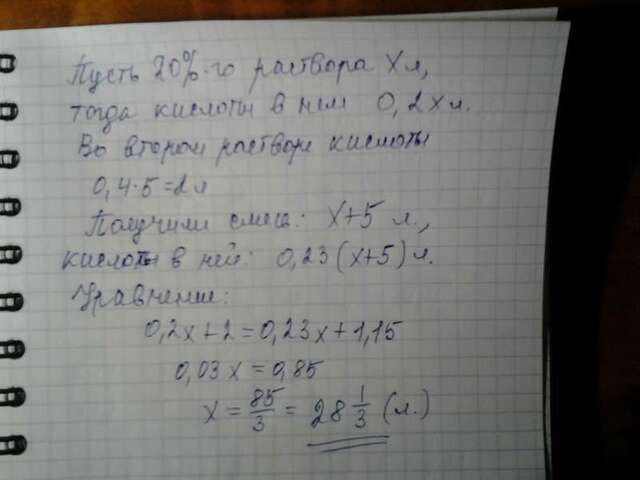 Пусть 20%-го раствора X л,
тогда кислоты в нем 0,2x л.
Во втором растворе кислоты
0,4·5=2 л
Получили смесь: X+5 л.,
кислоты в ней: 0,23(x+5) л.
Уравнение:
0,2x+2=0,23x+1,15
0,03x=0,85
x = 85/3 = 28 1/3 (л.)